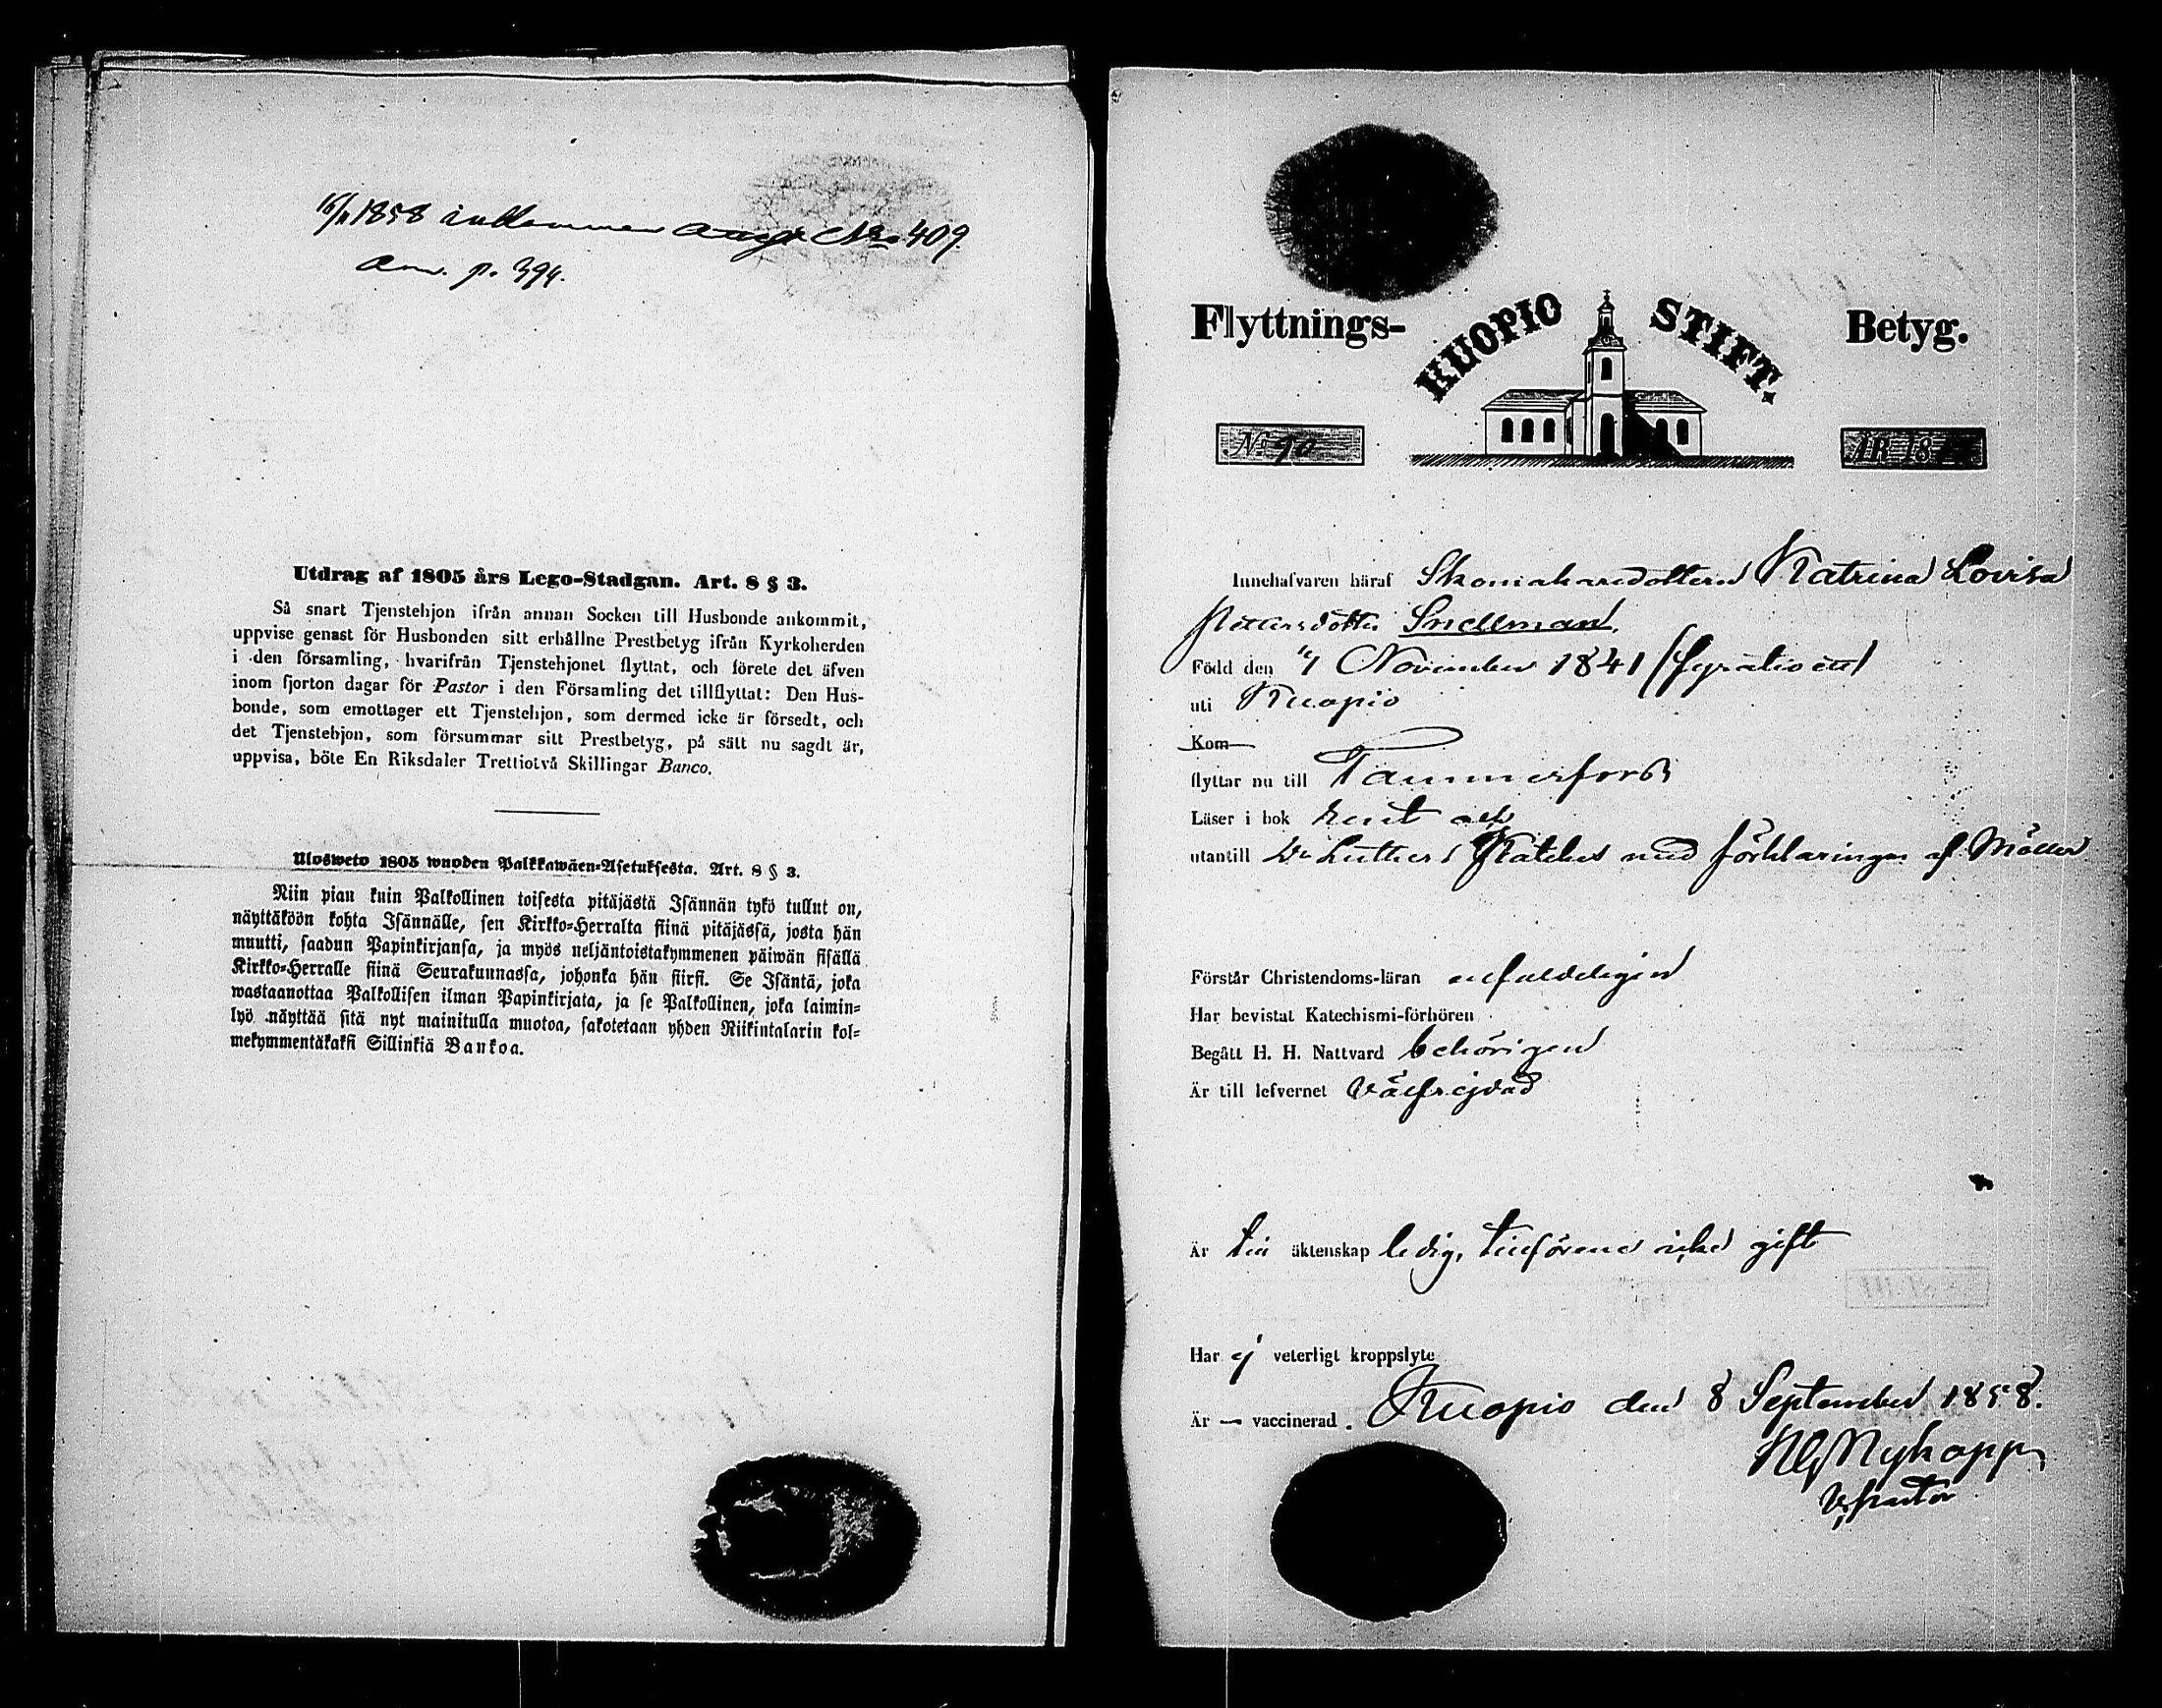 16/11 1858 inkommen Nro 409.
Ann. p. 394.
Utdrag af 1805 års Lego-Stadgan. Art. 8 § 3.
Så snart Tjenstehjon ifrån annan Socken till Husbonde ankommit,
uppvise genast för Husbonden sitt erhållne Prestbetyg ifrån Kyrkoherden
i den församling, hvarifrån Tjenstehjonet flyttat, och förete det äfven
inom fjorton dagar för Pastor i den Församling det tillflyttat: Den Hus-
bonde, som emottager ett Tjenstehjon, som dermed icke är försedt, och
det Tjenstehjon, som försummar sitt Prestbetyg, på sätt nu sagdt är,
uppvisa, böte En Riksdaler Trettiotvå Skillingar Banco.
Ulosweto 1805 wuoden Palkkawäen-Asetuksesta. Art. 8 § 3.
Niin pian kuin Palkollinen toisesta pitäjästä Isännän tykö tullut on,
näyttäköön kohta Isännälle, sen Kirkko-Herralta siinä pitäjässä, josta hän
muutti, saadun Papinkirjansa, ja myös neljäntoistakymmenen päiwän sisällä
Kirkko-Herralle siinä Seurakunnassa, johonka hän siirsi. Se Isäntä, joka
wastaanottaa Palkollisen ilman Papinkirjata, ja se Palkollinen, joka laimin-
lyö näyttää sitä nyt mainitulla muotoa, sakotetaan yhden Riikintalarin kol-
mekymmentäkaksi Sillinkiä Bankoa.
Flyttnings- KUOPIO STIFT. Betyg.
No 90 ÅR 18
Innehafvaren häraf Skomakaredottern Katrina Lovisa
Pettersdotter Snellman,
Född den November 1841 (fyratioett)
uti Kuopio
Kom
flyttar nu till Tammerfors
Läser i bok rent och
utantill Dr Luthers Kateches med förklaringen af Möller
Förstår Christendoms-läran enfaldeligen
Har bevistat Katechismi-förhören
Begått H. H. Nattvard behörigen
Är till lefvernet välfrejdad
Är till äktenskap ledig, tillförene icke gift
Har ej veterligt kroppslyte
Är — vaccinerad. Kuopio den 8 September 1858.
Nykopp
V. Pastor